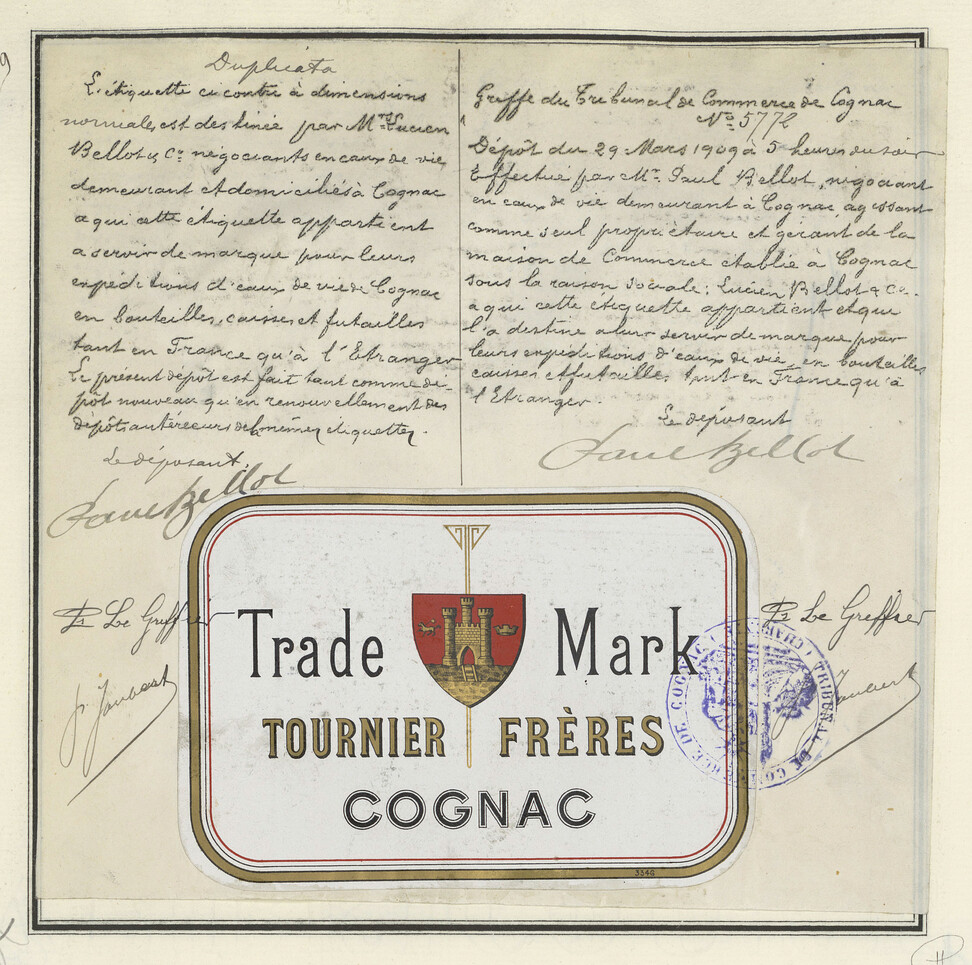 Duplicata
L'étiquette ci contre à dimensions
normales est destinée par Mrs Lucien
Bellot & Co négociants en eaux de vie
demeurant et domiciliés à Cognac
à qui cette étiquette appartient
a servir de marque pour leurs
expéditions d'eaux de vie de Cognac
en bouteilles, caisses et futailles
tant en France qu'à l'Etranger
Le présent dépôt est fait tant comme dé-
pôt nouveau qu'en renouvellement des
dépôts antérieurs de la même etiquette.
Le déposant.
Paul Bellot
Greffe du Tribunal de Commerce de Cognac
No 5772
Dépôt du 29 Mars 1909 à 5 heures du soir
Effectué par Mr. Paul Bellot, négociant
en eaux de vie demeurant à Cognac, agissant
comme seul propriétaire et gérant de la
maison de Commerce établie à Cognac
sous la raison sociale: Lucien Bellot & Co.
a qui cette etiquette appartient et qui
l'a destine a leur servir de marque pour
leurs expéditions d'eaux de vie, en bouteilles
caisses et futailles tant en France qu'à
l'Etranger.
Le déposant
Paul Bellot
Le Greffier
Le Greffier
Trade Mark
TOURNIER FRÈRES
COGNAC
TRIBUNAL DE COMMERCE DE COGNAC